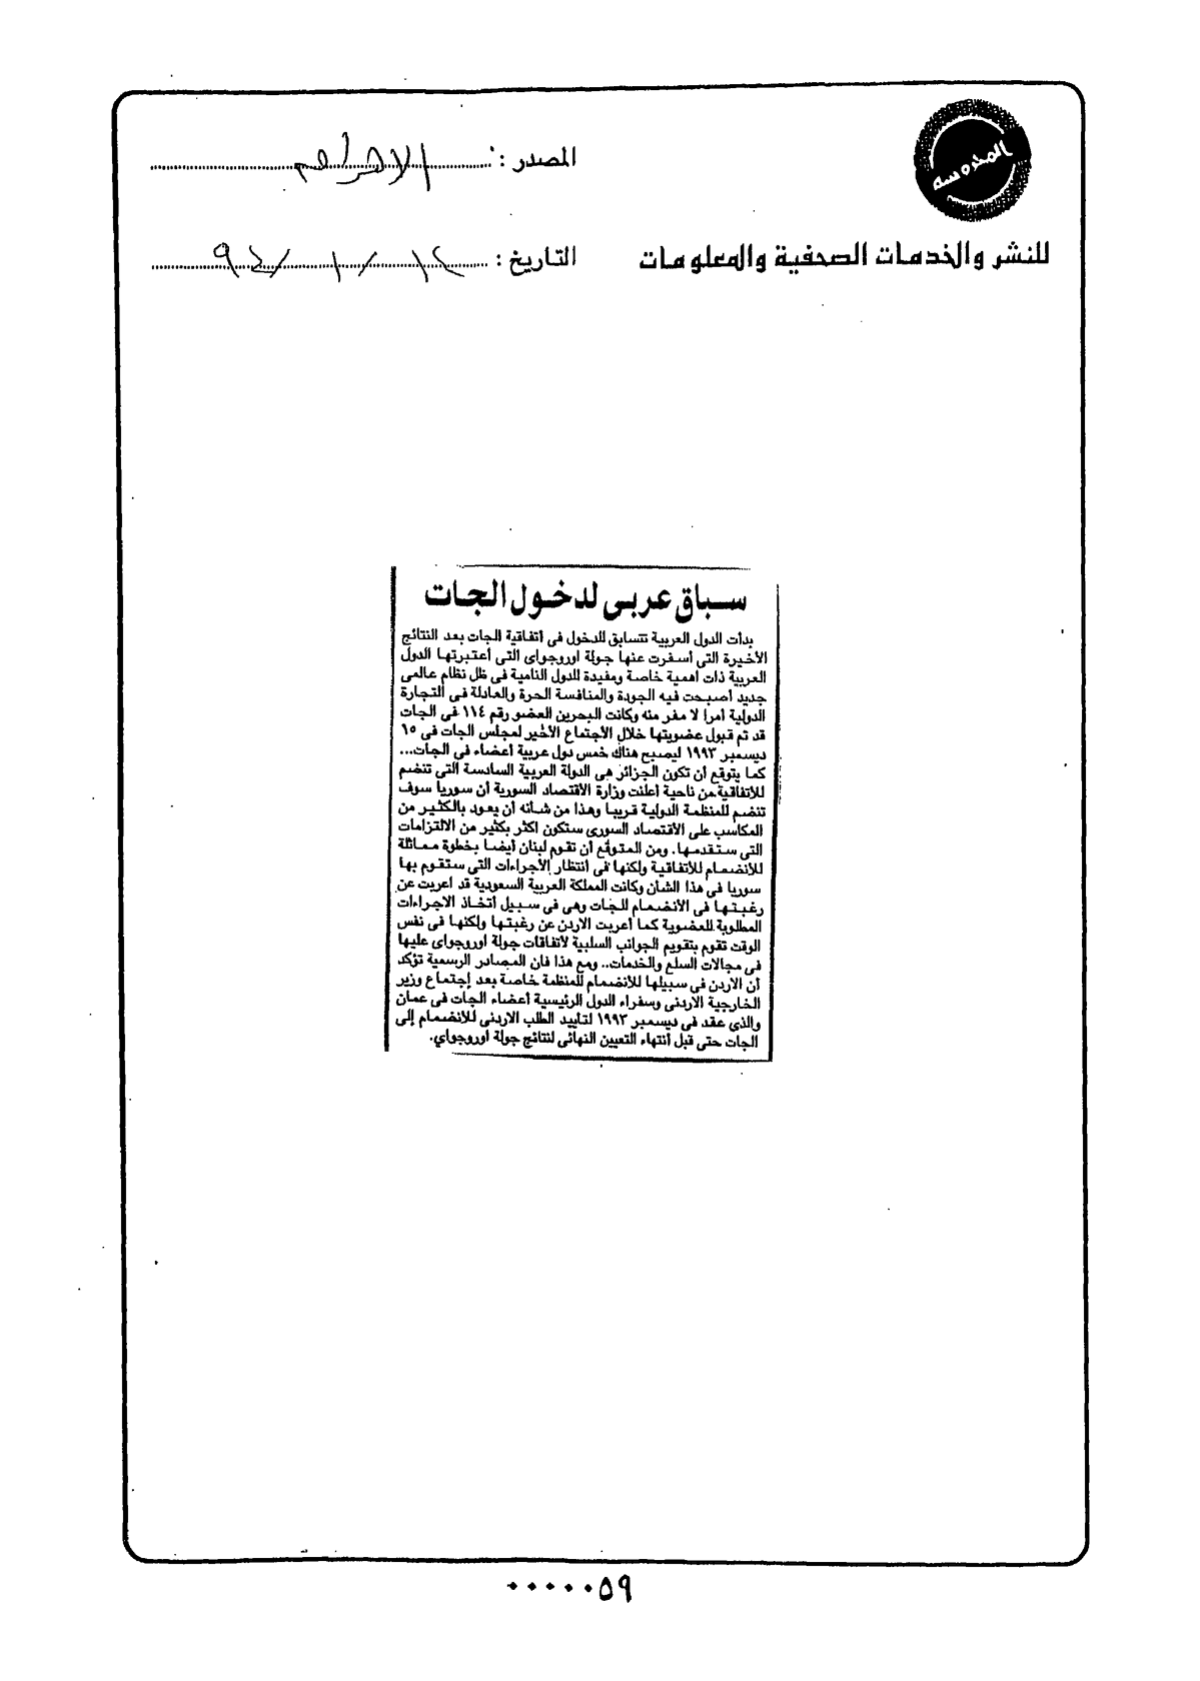 المحروسه
المصدر : الاهرام
للنشر والخدمات الصحفية والمعلومات
التاريخ : ١٢ / ١ / ٩٤
سباق عربى لدخول الجات
بدأت الدول العربية تتسابق للدخول فى أتفاقية الجات بعد النتائج
الأخيرة التى أسفرت عنها جولة اوروجواى التى أعتبرتها الدول
العربية ذات اهمية خاصة ومفيدة للدول النامية فى ظل نظام عالمى
جديد أصبحت فيه الجودة والمنافسة الحرة والعادلة فى التجارة
الدولية أمرا لا مفر منه وكانت البحرين العضو رقم ١١٤ فى الجات
قد تم قبول عضويتها خلال الأجتماع الأخير لمجلس الجات فى ١٥
ديسمبر ١٩٩٣ ليصبح هناك خمس دول عربية أعضاء فى الجات...
كما يتوقع أن تكون الجزائر هى الدولة العربية السادسة التى تنضم
للأتفاقية من ناحية أعلنت وزارة الأقتصاد السورية أن سوريا سوف
تنضم للمنظمة الدولية قريبا وهذا من شانه أن يعود بالكثير من
المكاسب على الأقتصاد السورى ستكون اكثر بكثير من الالتزامات
التى ستقدمها. ومن المتوقع أن تقوم لبنان أيضا بخطوة مماثلة
للأنضمام للأتفاقية ولكنها فى أنتظار الأجراءات التى ستقوم بها
سوريا فى هذا الشان وكانت المملكة العربية السعودية قد أعربت عن
رغبتها فى الأنضمام للجات وهى فى سبيل أتخاذ الاجراءات
المطلوبة للعضوية كما أعربت الاردن عن رغبتها ولكنها فى نفس
الوقت تقوم بتقويم الجوانب السلبية لأتفاقات جولة اوروجواى عليها
فى مجالات السلع والخدمات.. ومع هذا فان المصادر الرسمية تؤكد
أن الاردن فى سبيلها للأنضمام للمنظمة خاصة بعد إجتماع وزير
الخارجية الاردنى وسفراء الدول الرئيسية أعضاء الجات فى عمان
والذى عقد فى ديسمبر ١٩٩٣ لتاييد الطلب الاردنى للأنضمام إلى
الجات حتى قبل أنتهاء التعيين النهائى لنتائج جولة اوروجواي.
٠٠٠٠٠٥٩